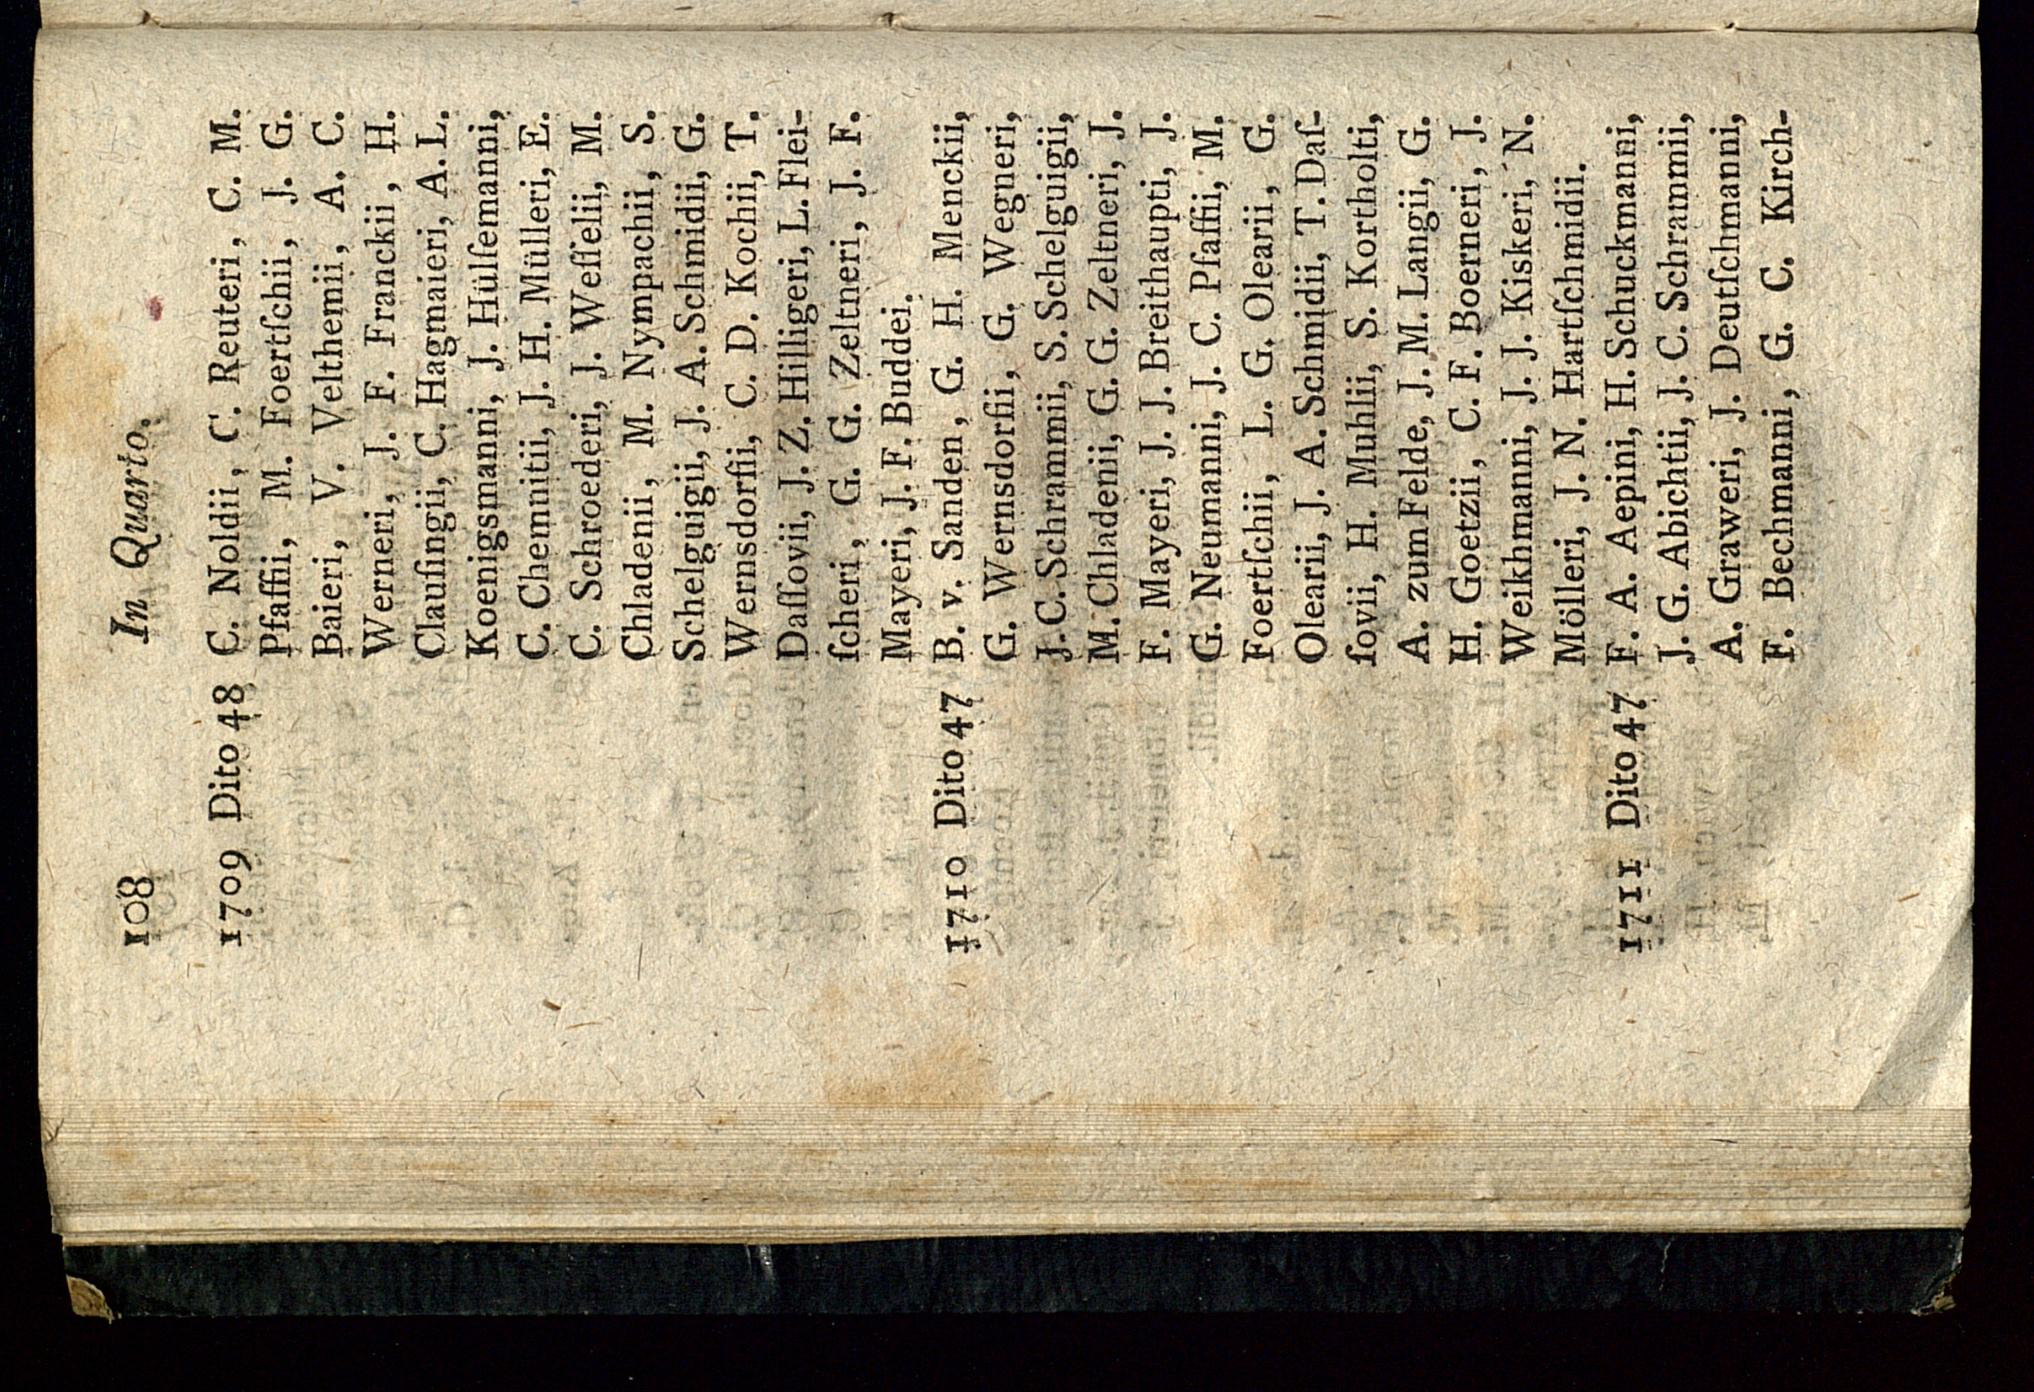 108 In Quarto.
1709 Dito 48 C. Noldii, C. Reuteri, C. M.
Pfaffii, M. Foertſchii, J. G.
Baieri, V. Velthemii, A. C.
Werneri, J. F. Franckii, H.
Clauſingii, C. Hagmaieri, A. L.
Koenigsmanni, J. Hülſemanni,
C. Chemnitii, J. H. Mülleri, E.
C. Schroederi, J. Weſſelii, M.
Chladenii, M. Nympachii, S.
Schelguigii, J. A. Schmidii, G.
Wernsdorfii, C. D. Kochii, T.
Daſſovii, J. Z. Hilligeri, L. Flei-
ſcheri, G. G. Zeltneri, J. F.
Mayeri, J. F. Buddei.
1710 Dito 47 B. v. Sanden, G. H. Menckii,
G. Wernsdorfii, G. Wegneri,
J. C. Schrammii, S. Schelguigii,
M. Chladenii, G. G. Zeltneri, J.
F. Mayeri, J. J. Breithaupti, J.
G. Neumanni, J. C. Pfaffii, M.
Foertſchii, L. G. Olearii, G.
Olearii, J. A. Schmidii, T. Daſ-
ſovii, H. Muhlii, S. Kortholti,
A. zum Felde, J. M. Langii, G.
H. Goetzii, C. F. Boerneri, J.
Weikhmanni, J. J. Kiskeri, N.
Mölleri, J. N. Hartſchmidii.
1711 Dito 47 F. A. Aepini, H. Schuckmanni,
J. G. Abichtii, J. C. Schrammii,
A. Graweri, J. Deutſchmanni,
F. Bechmanni, G. C. Kirch-